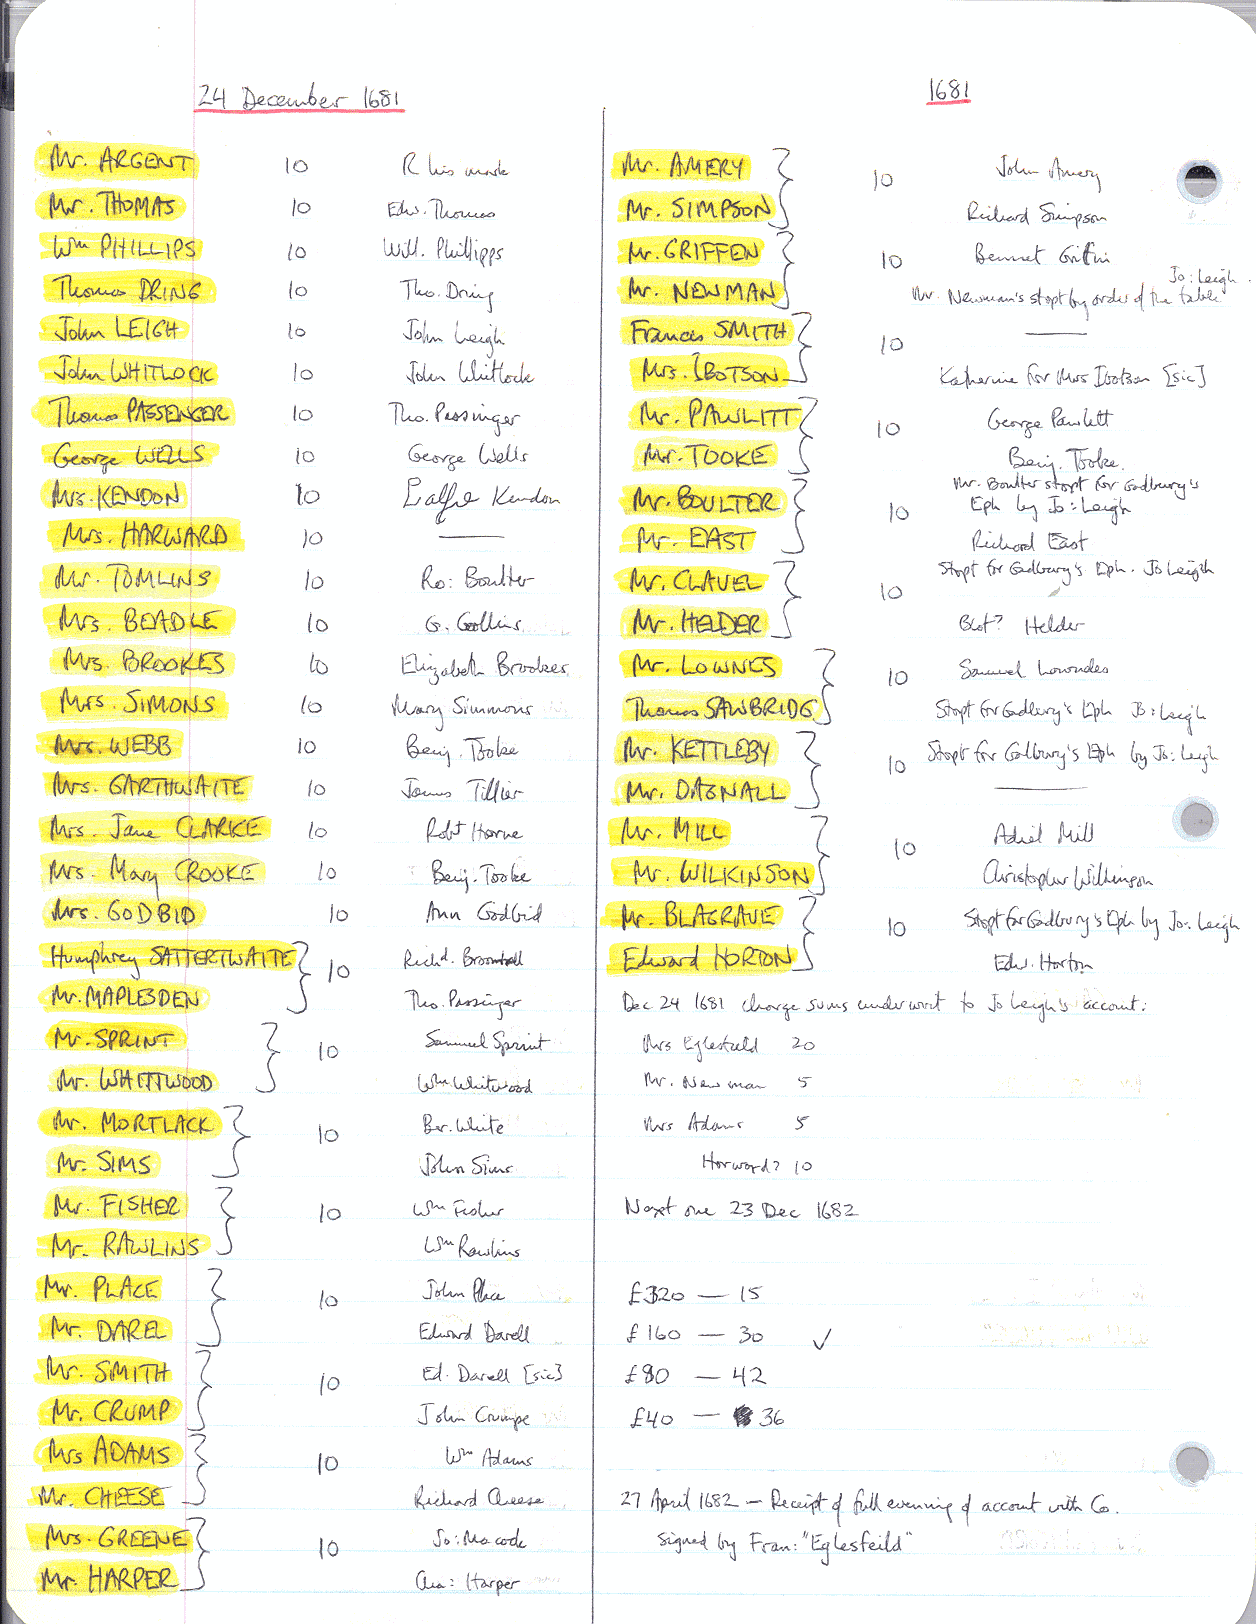 24 December 1681
Mr. ARGENT 10 R his mark
Mr. THOMAS 10 Edw. Thomas
Wm PHILLIPS 10 Will. Phillipps
Thomas DRING 10 Tho. Dring
John LEIGH 10 John Leigh
John WHITLOCK 10 John Whitlock
Thomas PASSENGER 10 Tho. Passinger
George WELLS 10 George Wells
Mrs. KENDON 10 Ralfe Kendon
Mrs. HARWARD 10 —
Mr. TOMLINS 10 Ro: Boulter
Mrs. BEADLE 10 G. Collins
Mrs. BROOKES 10 Elizabeth Brookes
Mrs. SIMONS 10 Mary Simmons
Mrs. WEBB 10 Benj. Tooke
Mrs. GARTHWAITE 10 James Tillier
Mrs. Jane CLARKE 10 Robt Horne
Mrs. Mary CROOKE 10 Benj. Tooke
Mrs. GODBID 10 Ann Godbid
Humphrey SATTERTWAITE } 10 Richd.
Mr. MAPLESDEN Tho. Passinger
Mr. SPRINT } 10 Samuel Sprint
Mr. WHITTWOOD Wm Whitwood
Mr. MORTLACK } 10 Ber. White
Mr. SIMS John Sims
Mr. FISHER } 10 Wm Fisher
Mr. RAWLINS Wm Rawlins
Mr. PLACE } 10 John Place
Mr. DAREL Edward Darell
Mr. SMITH } 10 Ed. Darell [sic]
Mr. CRUMP John Crumpe
Mrs ADAMS } 10 Wm Adams
Mr. CHEESE Richard Cheese
Mrs. GREENE } 10 Jo: Macock
Mr. HARPER Cha: Harper
1681
Mr. AMERY } 10 John Amery
Mr. SIMPSON Richard Simpson
Mr. GRIFFEN } 10 Bennet Griffin
Mr. NEWMAN Mr. Newman's stopt by order of the table Jo: Leigh.
Francis SMITH } 10 —
Mrs. IBOTSON Katherine for Mrs Ibotson [sic]
Mr. PAWLITT } 10 George Pawlett
Mr. TOOKE Benj. Tooke.
Mr. BOULTER } 10 Mr. Boulter stopt for Gadbury's
Eph by Jo: Leigh
Mr. EAST Richard East
Mr. CLAVEL } 10 Stopt for Gadbury's Eph. Jo Leigh
Mr. HELDER Blot? Helder
Mr. LOWNES } 10 Samuel Lowndes
Thomas SAWBRIDG Stopt for Gadbury's Eph Jo: Leigh
Mr. KETTLEBY } 10 Stopt for Gadbury's Eph by Jo: Leigh
Mr. DAGNALL —
Mr. MILL } 10 Adiel Mill
Mr. WILKINSON Christopher Wilkinson
Mr. BLAGRAVE } 10 Stopt for Gadbury's Eph by Jo. Leigh
Edward HORTON Edw. Horton
Dec 24 1681 charge sums underwrit to Jo Leigh's account:
Mrs Eglesfeild 20
Mr. Newman 5
Mrs Adams 5
Harward? 10
Next one 23 Dec 1682
£320 — 15
£160 — 30 ✓
£80 — 42
£40 — 36
27 April 1682 — Receipt of full evening of account with Co.
signed by Fran: "Eglesfeild"